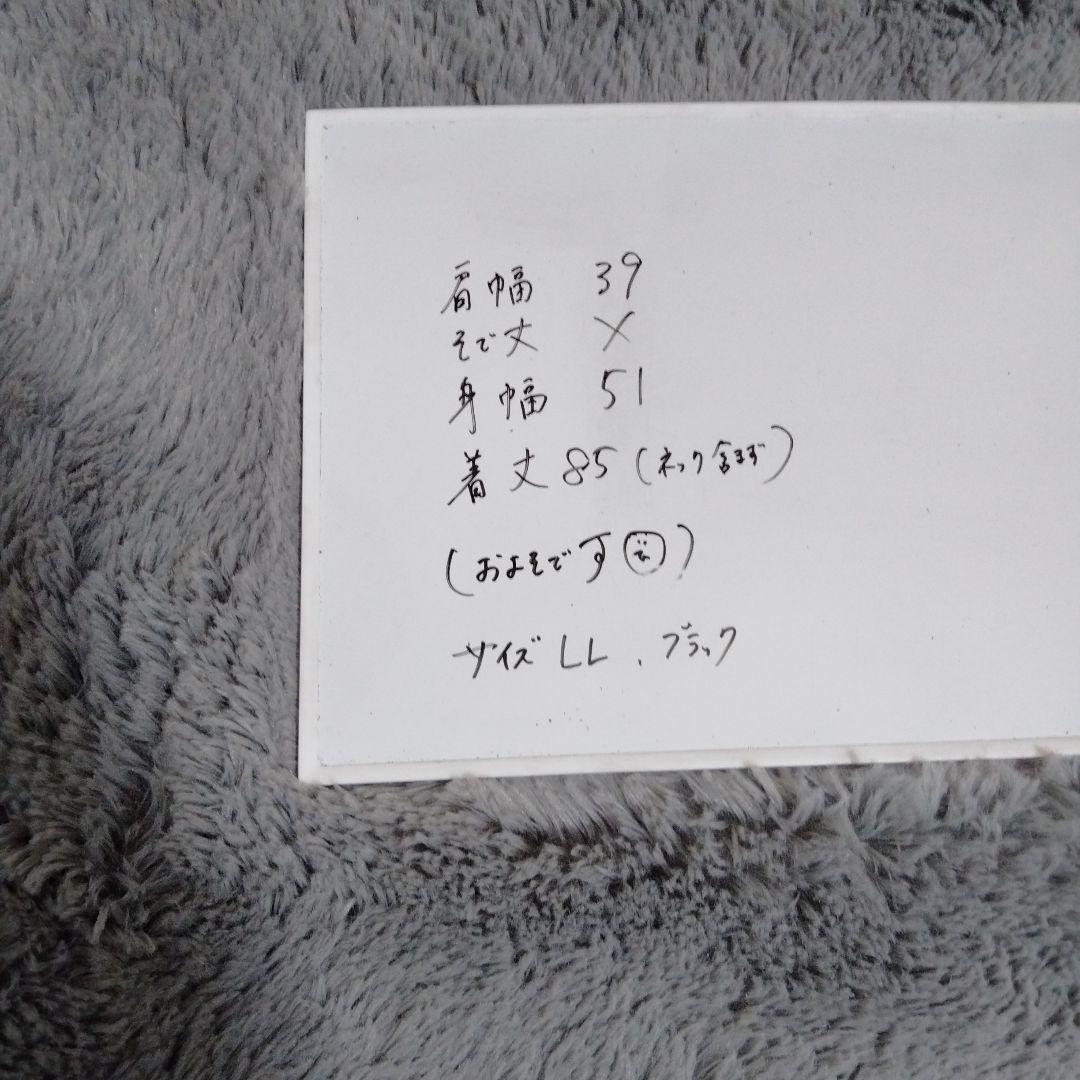 肩幅 39
そで丈 ×
身幅 51
着丈 85 (ネック含まず)
(およそです)
サイズ LL 、ブラック